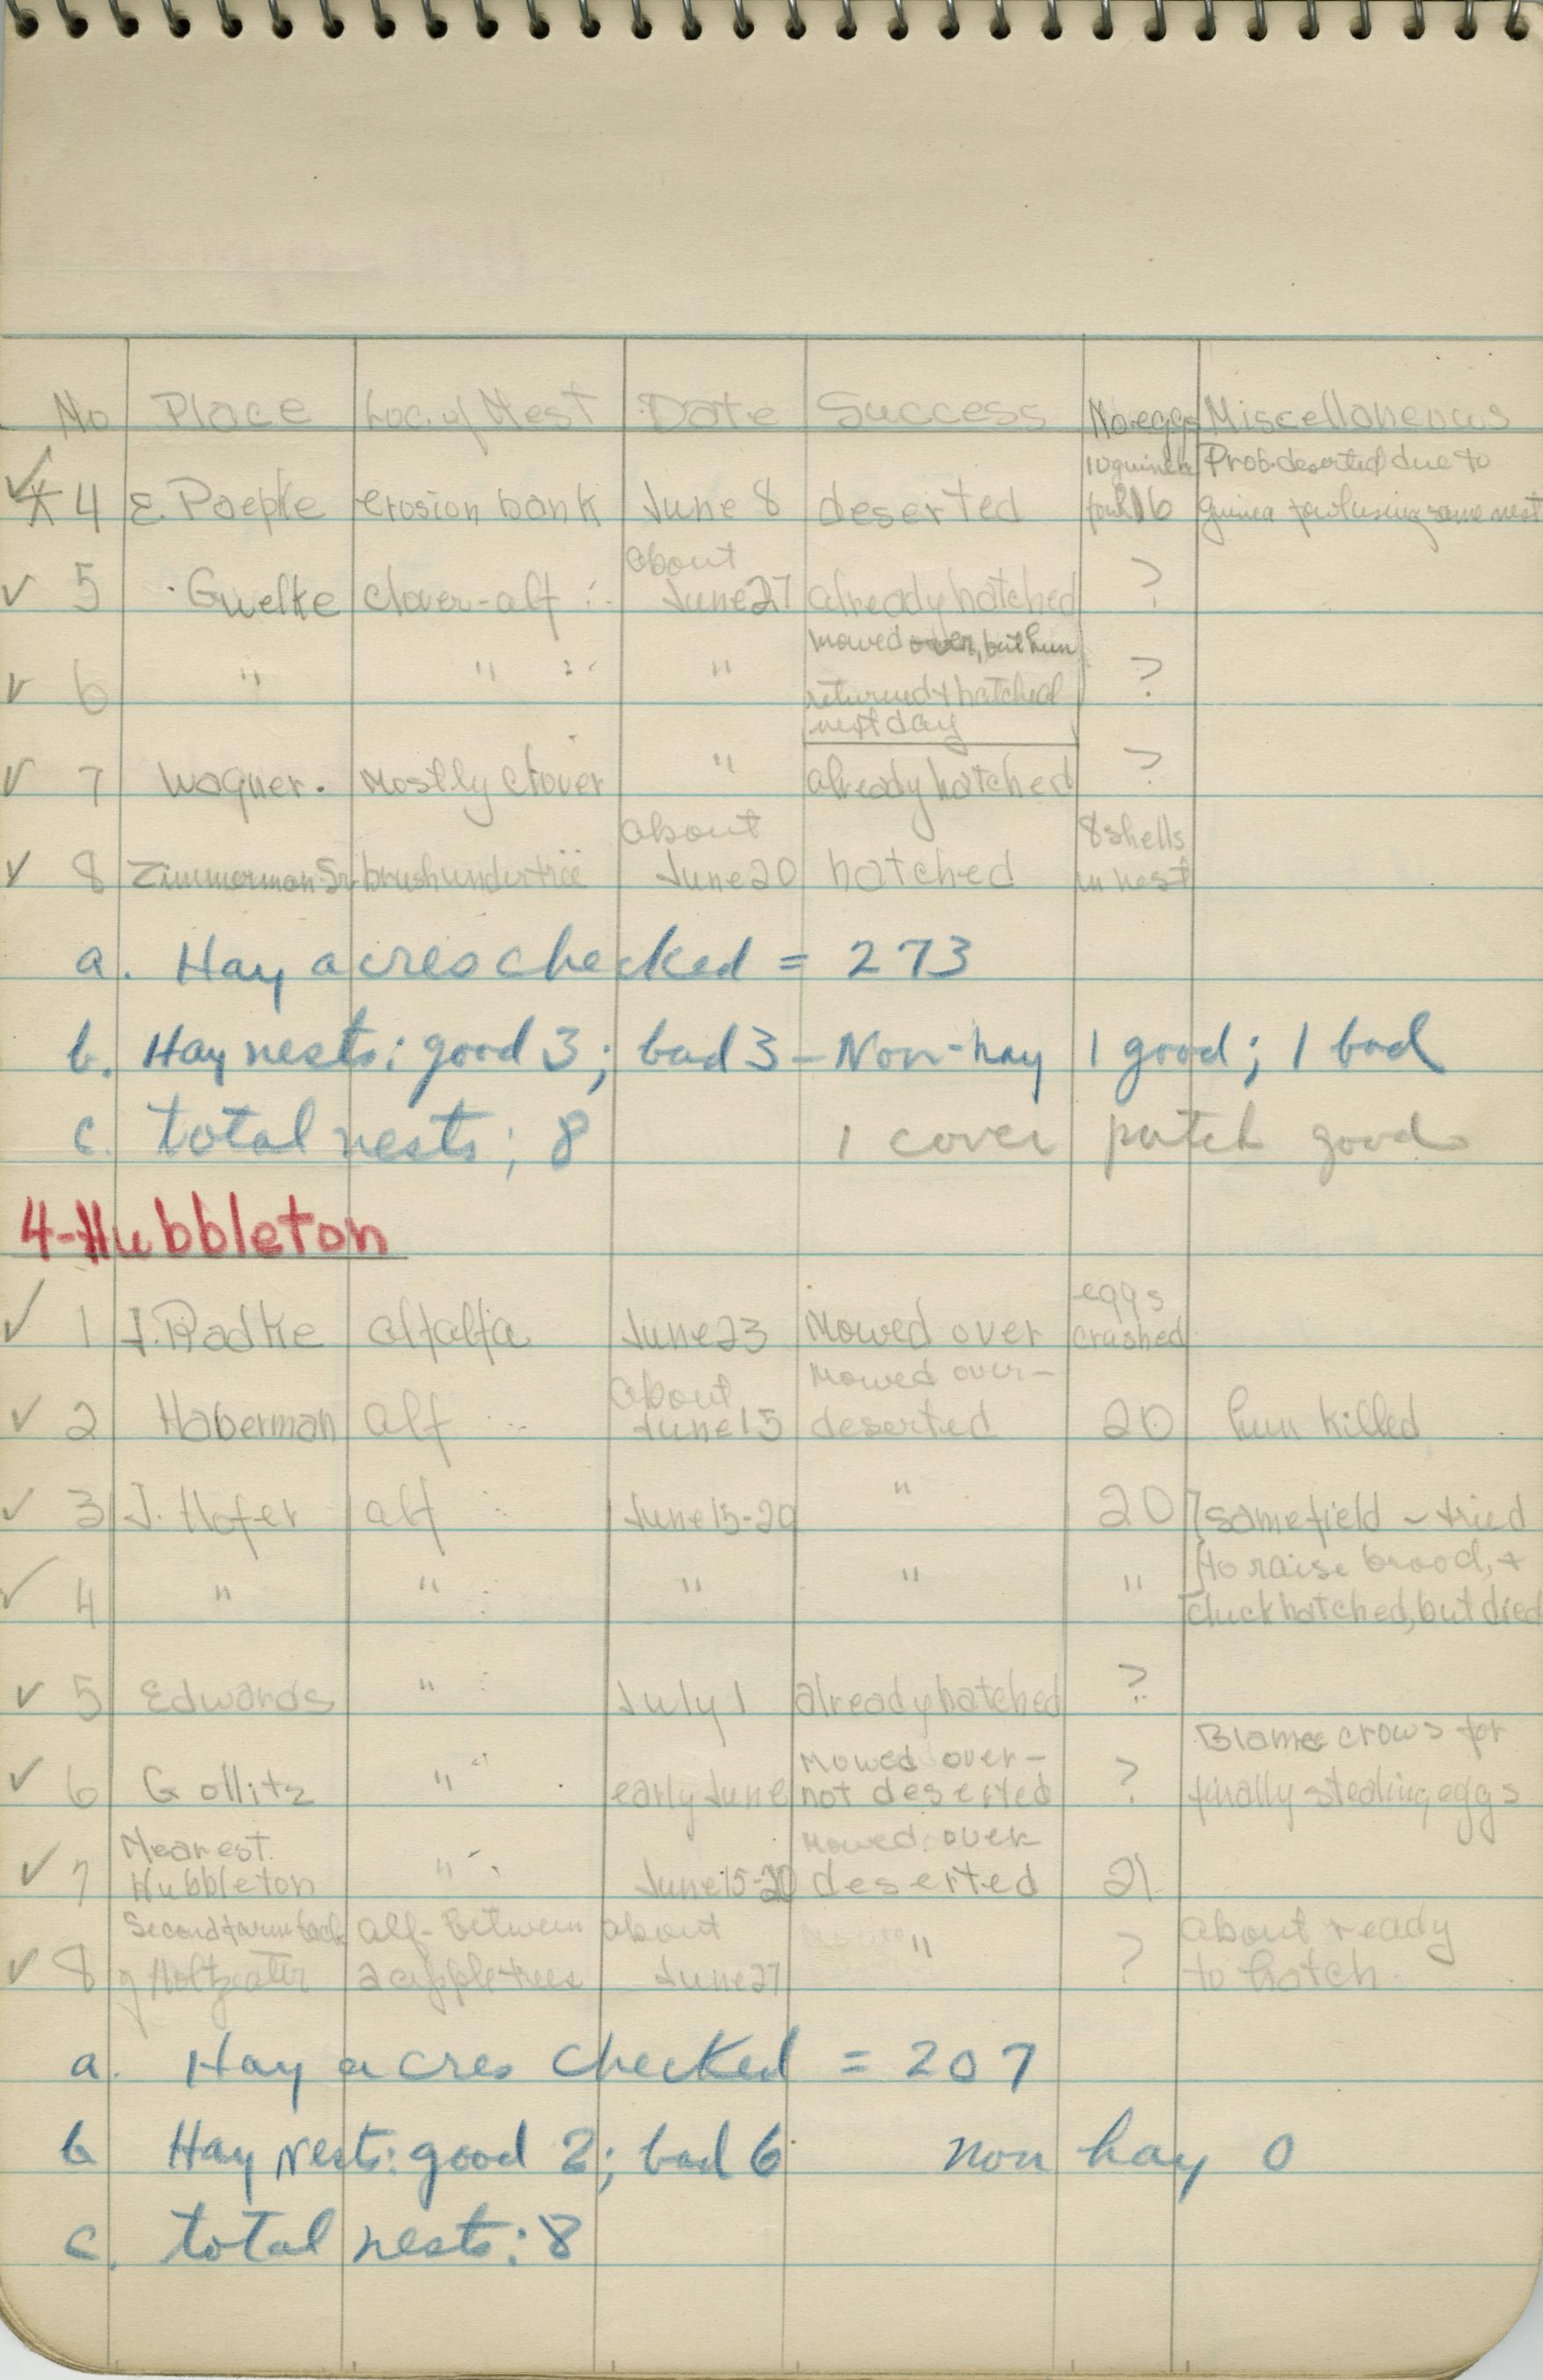 No Place Loc. of Nest Date Success No. eggs Miscellaneous
10 guinea Prob. deserted due to
✓ * 4 E. Paepke erosion bank June 8 deserted fowl 16 guinea fowl using same nest
about
✓ 5 Guelke clover-alf June 27 already hatched ?
mowed over, but hen
✓ 6 " " " returned & hatched ?
next day
✓ 7 Wagner. mostly clover " already hatched ?
about 8 shells
✓ 8 Zimmerman Sr. brush under tree June 20 hatched in nest
a. Hay acres checked = 273
b. Hay nests: good 3; bad 3 - Non-hay 1 good; 1 bad
c. total nests; 8 1 cover patch good
4-Hubbleton
eggs
✓ 1 J. Radke alfalfa June 23 Mowed over crushed
about Mowed over-
✓ 2 Haberman alf June 15 deserted 20 hen killed
✓ 3 J. Hofer alf June 15-20 " 20 same field - tried
to raise brood, &
✓ 4 " " " " " cluck hatched, but died
✓ 5 Edwards " July 1 already hatched ?
Mowed over- Blame crows for
✓ 6 Gollitz " early June not deserted ? finally stealing eggs
Nearest Mowed over-
✓ 7 Hubbleton " June 15-20 deserted 21
Second farm back alf- between about about ready
✓ 8 2 apple trees June 27 " ? to hatch.
a. Hay acres checked = 207
b Hay nests: good 2; bad 6 non hay 0
c. total nests: 8